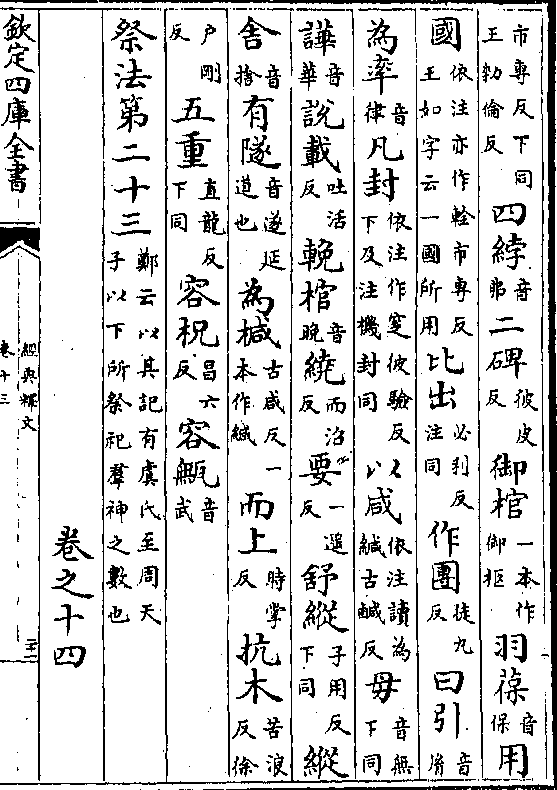 市專反下同王勑倫反四綍音弗二碑彼皮反御棺一本作御柩羽葆音保用
國依注亦作輇市專反王如字云一國所用比出必利反注同作團徒九反曰引音胤
為率音律凡封依注作窆彼驗反下及注機封同以咸依注讀為緘古鹹反毋音無下同
譁音華說載吐活反輓棺音晚繞而沼反要一遥反舒縱子用反下同縱
舍音捨有隧音遂延道也為椷古咸反一本作緘而上時掌反抗木苦浪反徐
户剛反五重直龍反下同容柷昌六反容甒音武
祭法第二十三鄭云以其記有虞氏至周天子以下所祭祀羣神之數也
卷之十四
欽定四庫全書
經典釋文
卷十三